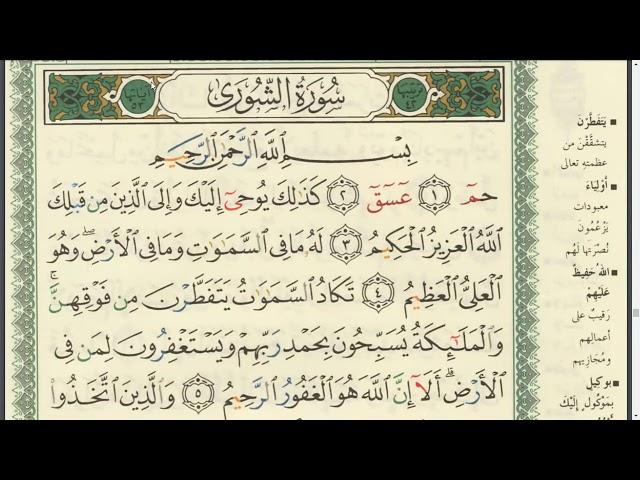 آياتها ٥٣
سُورَةُ الشُّورَىٰ
ترتيبها ٤٢
بِسْمِ اللَّهِ الرَّحْمَٰنِ الرَّحِيمِ
حمٓ ١ عٓسٓقٓ ٢ كَذَٰلِكَ يُوحِىٓ إِلَيْكَ وَإِلَى الَّذِينَ مِن قَبْلِكَ
اللَّهُ الْعَزِيزُ الْحَكِيمُ ٣ لَهُۥ مَا فِى السَّمَٰوَٰتِ وَمَا فِى الْأَرْضِ ۖ وَهُوَ
الْعَلِىُّ الْعَظِيمُ ٤ تَكَادُ السَّمَٰوَٰتُ يَتَفَطَّرْنَ مِن فَوْقِهِنَّ ۚ
وَالْمَلَٰٓئِكَةُ يُسَبِّحُونَ بِحَمْدِ رَبِّهِمْ وَيَسْتَغْفِرُونَ لِمَن فِى
الْأَرْضِ ۗ أَلَآ إِنَّ اللَّهَ هُوَ الْغَفُورُ الرَّحِيمُ ٥ وَالَّذِينَ اتَّخَذُوا
▪ يَتَفَطَّرْنَ
يتشقَّقْنَ من
عظمتِه تعالى
▪ أَوْلِيَاءَ
معبودات
يَزْعُمُونَ
نُصْرَتَها لَهُم
▪ اللهُ حَفِيظٌ
عَلَيْهِمْ
رَقيبٌ على
أعمالِهم
ومُجَازِيهم
▪ بوكيل
بِمَوْكُولٍ إلَيْكَ